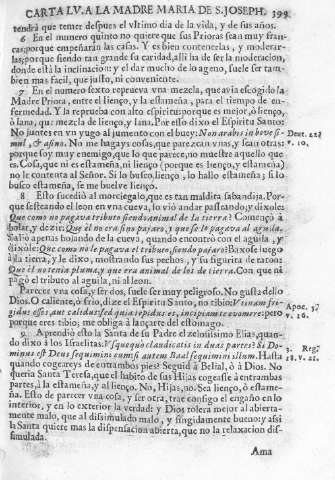 CARTA LV. A LA MADRE MARIA DE S. JOSEPH. 399
tendrà que temer despues el vltimo dia de la vida, y de sus años.
6 En el numero quinto no quiere que sus Prioras sean muy francas; porque empeñaràn las casas. Y es bien contenerlas, y moderarlas; porque siendo tan grande su caridad, alli ha de ser la moderacion, donde està la inclinacion: y el dar mucho de lo ageno, suele ser tambien mas facil, que justo, ni conveniente.
7 En el numero sexto reprueva vna mezcla, que avia escogido la
Madre Priora, entre el lienço, y la estameña, para el tiempo de enfermedad. Y la reprueba con alto espiritu: porque es mejor, ò lienço,
ò lana, que mezcla de lienço, y lana. Por esto dixo el Espiritu Santo:
No juntes en vn yugo al jumento con el buey: Non arabis in bove simul, & asino. No me hagays cosas, que parezcan vnas, y sean otras:
Deut. 22.
v. 10.
porque soy muy enemigo, que lo que parece, no muestre aquello que
es. Cosa, que ni es estameña, ni lienço (porque es lienço, y estameña)
no le contenta al Señor. Si lo busco, lienço, lo hallo estameña; si lo
busco estameña, se me buelve lienço.
8 Esto sucediò al morciegalo, que es tan maldita sabandija. Porque
Que como no pagava tributo siendo animal de la tierra? Començò à
bolar, y dezir: Que èl no era sino pajaro, y que se lo pagava al aguila.
Saliò apenas bolando de la cueva, quando encontrò con el aguila, y
dixole: Que como no le pagava el tributo, siendo pajaro? Baxose luego
à la tierra, y le dixo, mostrando sus pechos, y su figurita de raton:
Que èl no tenia pluma, y que era animal de los de tierra. Con que ni pagò el tributo al aguila, ni al leon.
Parecer vna cosa, y ser dos, suele ser muy peligroso. No gusta dello
Dios. O caliente, ò frio, dize el Espiritu Santo, no tibio:
porque eres tibio, me obliga à lançarte del estomago.
Apoc. 3.
v. 16.
9 Aprendiò esto la Santa de su Padre el zelosissimo Elias, quando dixo à los Israelitas. Vsquequò claudicatis in duas partes? Si Dominus est Deus sequimini eum: si autem Baal sequimini illum. Hasta
3. Reg.
18. v. 21.
quando cogeareys de entrambos pies? Seguid à Belial, ò à Dios. No
queria Santa Teresa, que el habito de sus Hijas cogeasse à entrambas
partes, à la estameña, y al lienço. No, Hijas, no: Sea lienço, ò estameña. Esto de parecer vna cosa, y ser otra, trae consigo el engaño en lo
interior, y en lo exterior la verdad: y Dios tolera mejor al abiertamente malo, que al disimulado malo, y fingidamente bueno: y assi
la Santa quiere mas la dispensacion abierta, que no la relaxacion dissimulada.
Ama